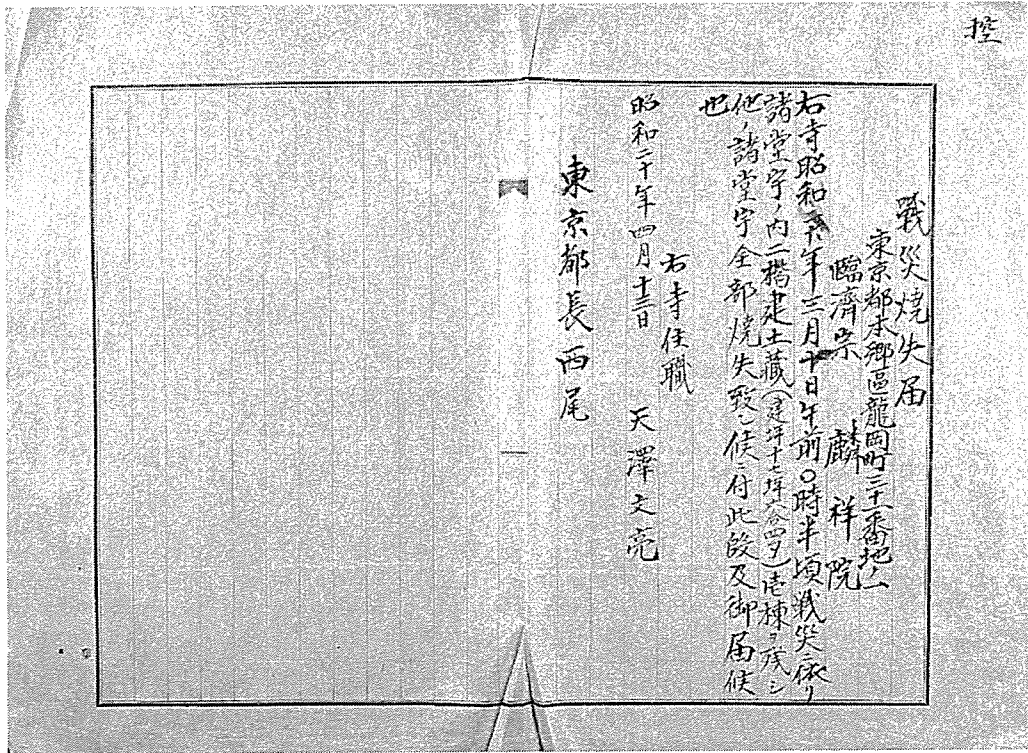 控
戰災燒失届
東京都本郷區龍岡町三十一番地ノ一
臨濟宗 麟祥院
右寺昭和二十年三月十日午前〇時半頃戦災ニ依リ
諸堂宇ノ内二階建土藏(建坪十七坪六合四夕)壱棟ヲ残シ
他ノ諸堂宇全部燒失致シ候ニ付此段及御届候
也
右寺住職 天澤文亮
昭和二十年四月十三日
東京都長西尾